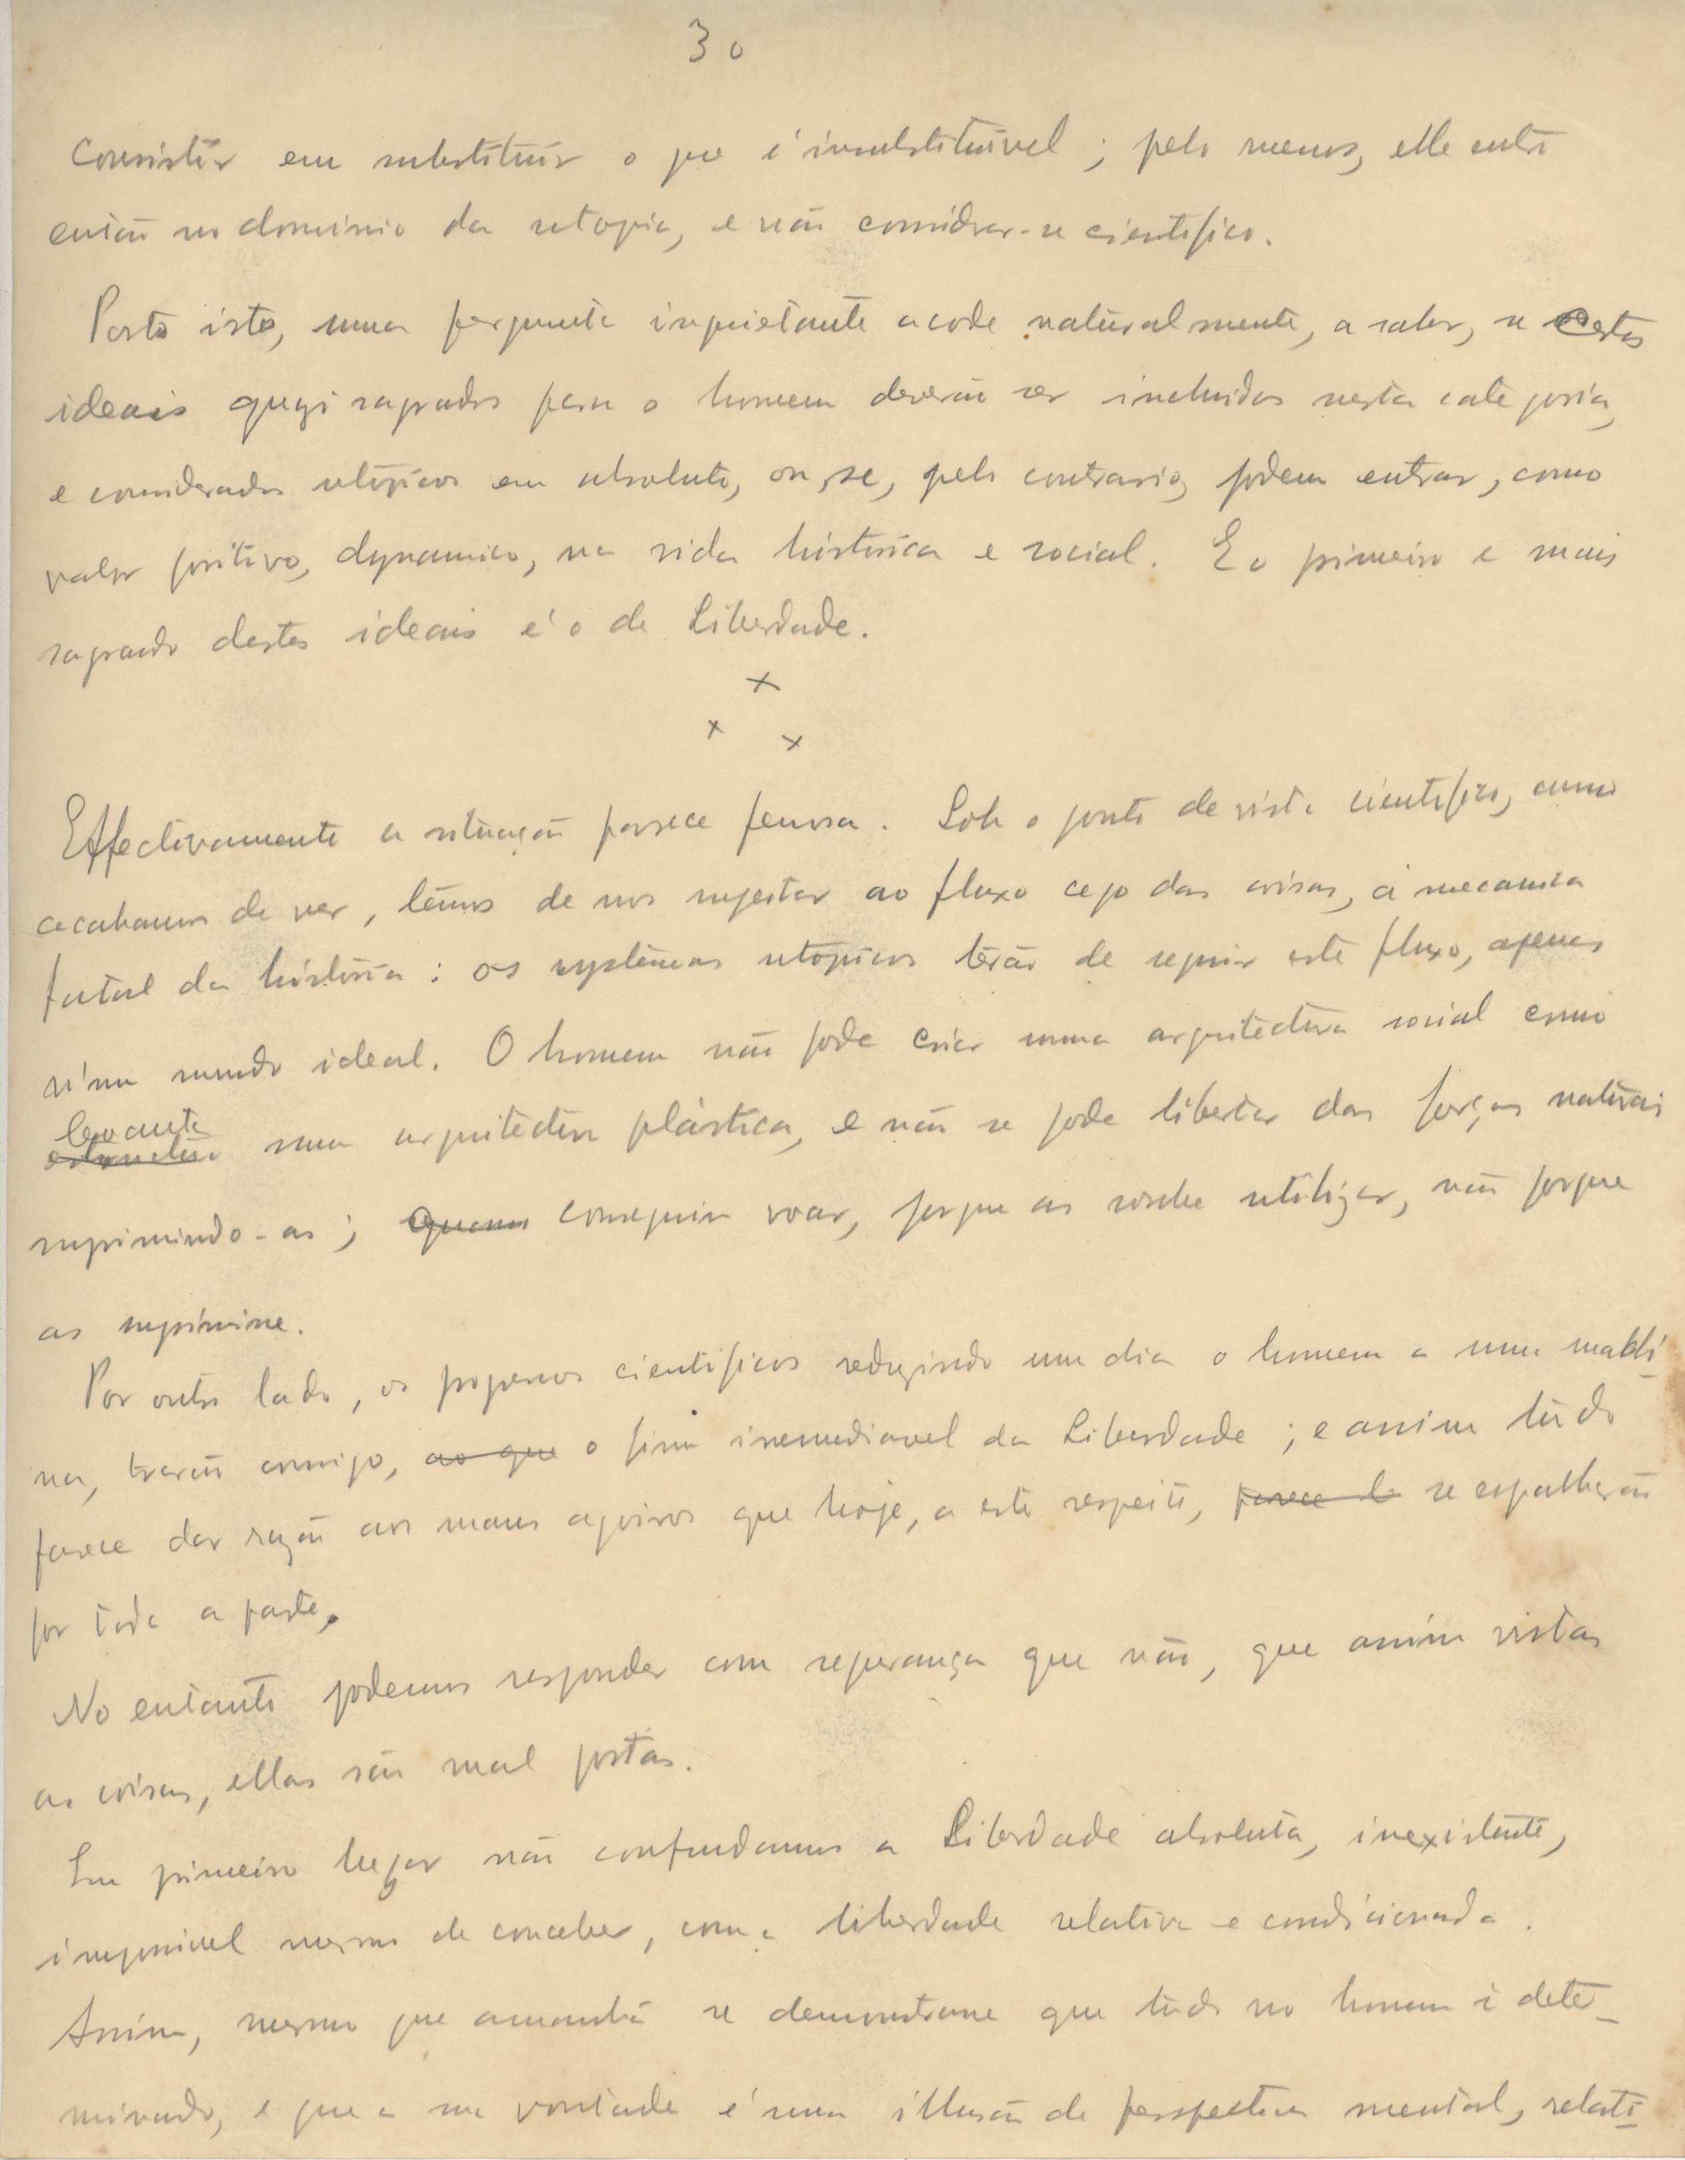 30
consistir em substituir o que é insubstituivel; pelo menos, elle entra
então no dominio da utopia, e não considerar-se cientifico.
Posto isto, uma pergunta inquietante acode naturalmente, a saber, se certos
ideais quazi sagrados para o homem deverão ser incluidos nesta categoria,
e considerados utópicos em absoluto, ou, se, pelo contrario, podem entrar, como
valor positivo, dynamico, na vida histórica e social. E o primeiro e mais
sagrado destes ideais é o de Liberdade.
x
x x
Effectivamente a situação parece penosa. Sob o ponto de vista cientifico, como
acabamos de ver, têmos de nos sujeitar ao fluxo cego das coisas, á mecanica
fatal da história: os systêmas utópicos terão de seguir este fluxo, apenas
n'um mundo ideal. O homem não pode criar uma arquitectura social como
levanta uma arquitectura plástica, e não se pode libertar das forças naturais
suprimindo-as; conseguiu voar, porque as soube utilizar, não porque
as suprimisse.
Por outro lado, os progressos cientificos reduzindo um dia o homem a uma machi-
na, trarão comsigo, ao que o fim irremediavel da Liberdade; e assim tùdo
parece dar razão aos maus agoiros que hoje, a este respeito, parece se espalharão
por toda a parte.
No entanto podemos responder com segurança que não, que assim vistas
as coisas, ellas são mal postas.
Em primeiro lugar não confundamos a Liberdade absoluta, inexistente,
impossivel mesmo de conceber, com a liberdade relativa e condicionada.
Assim, mesmo que amanhã se demonstrasse que tudo no homem é deter-
minado, e que a sua vontade é uma illusão de perspectiva mental, relati-